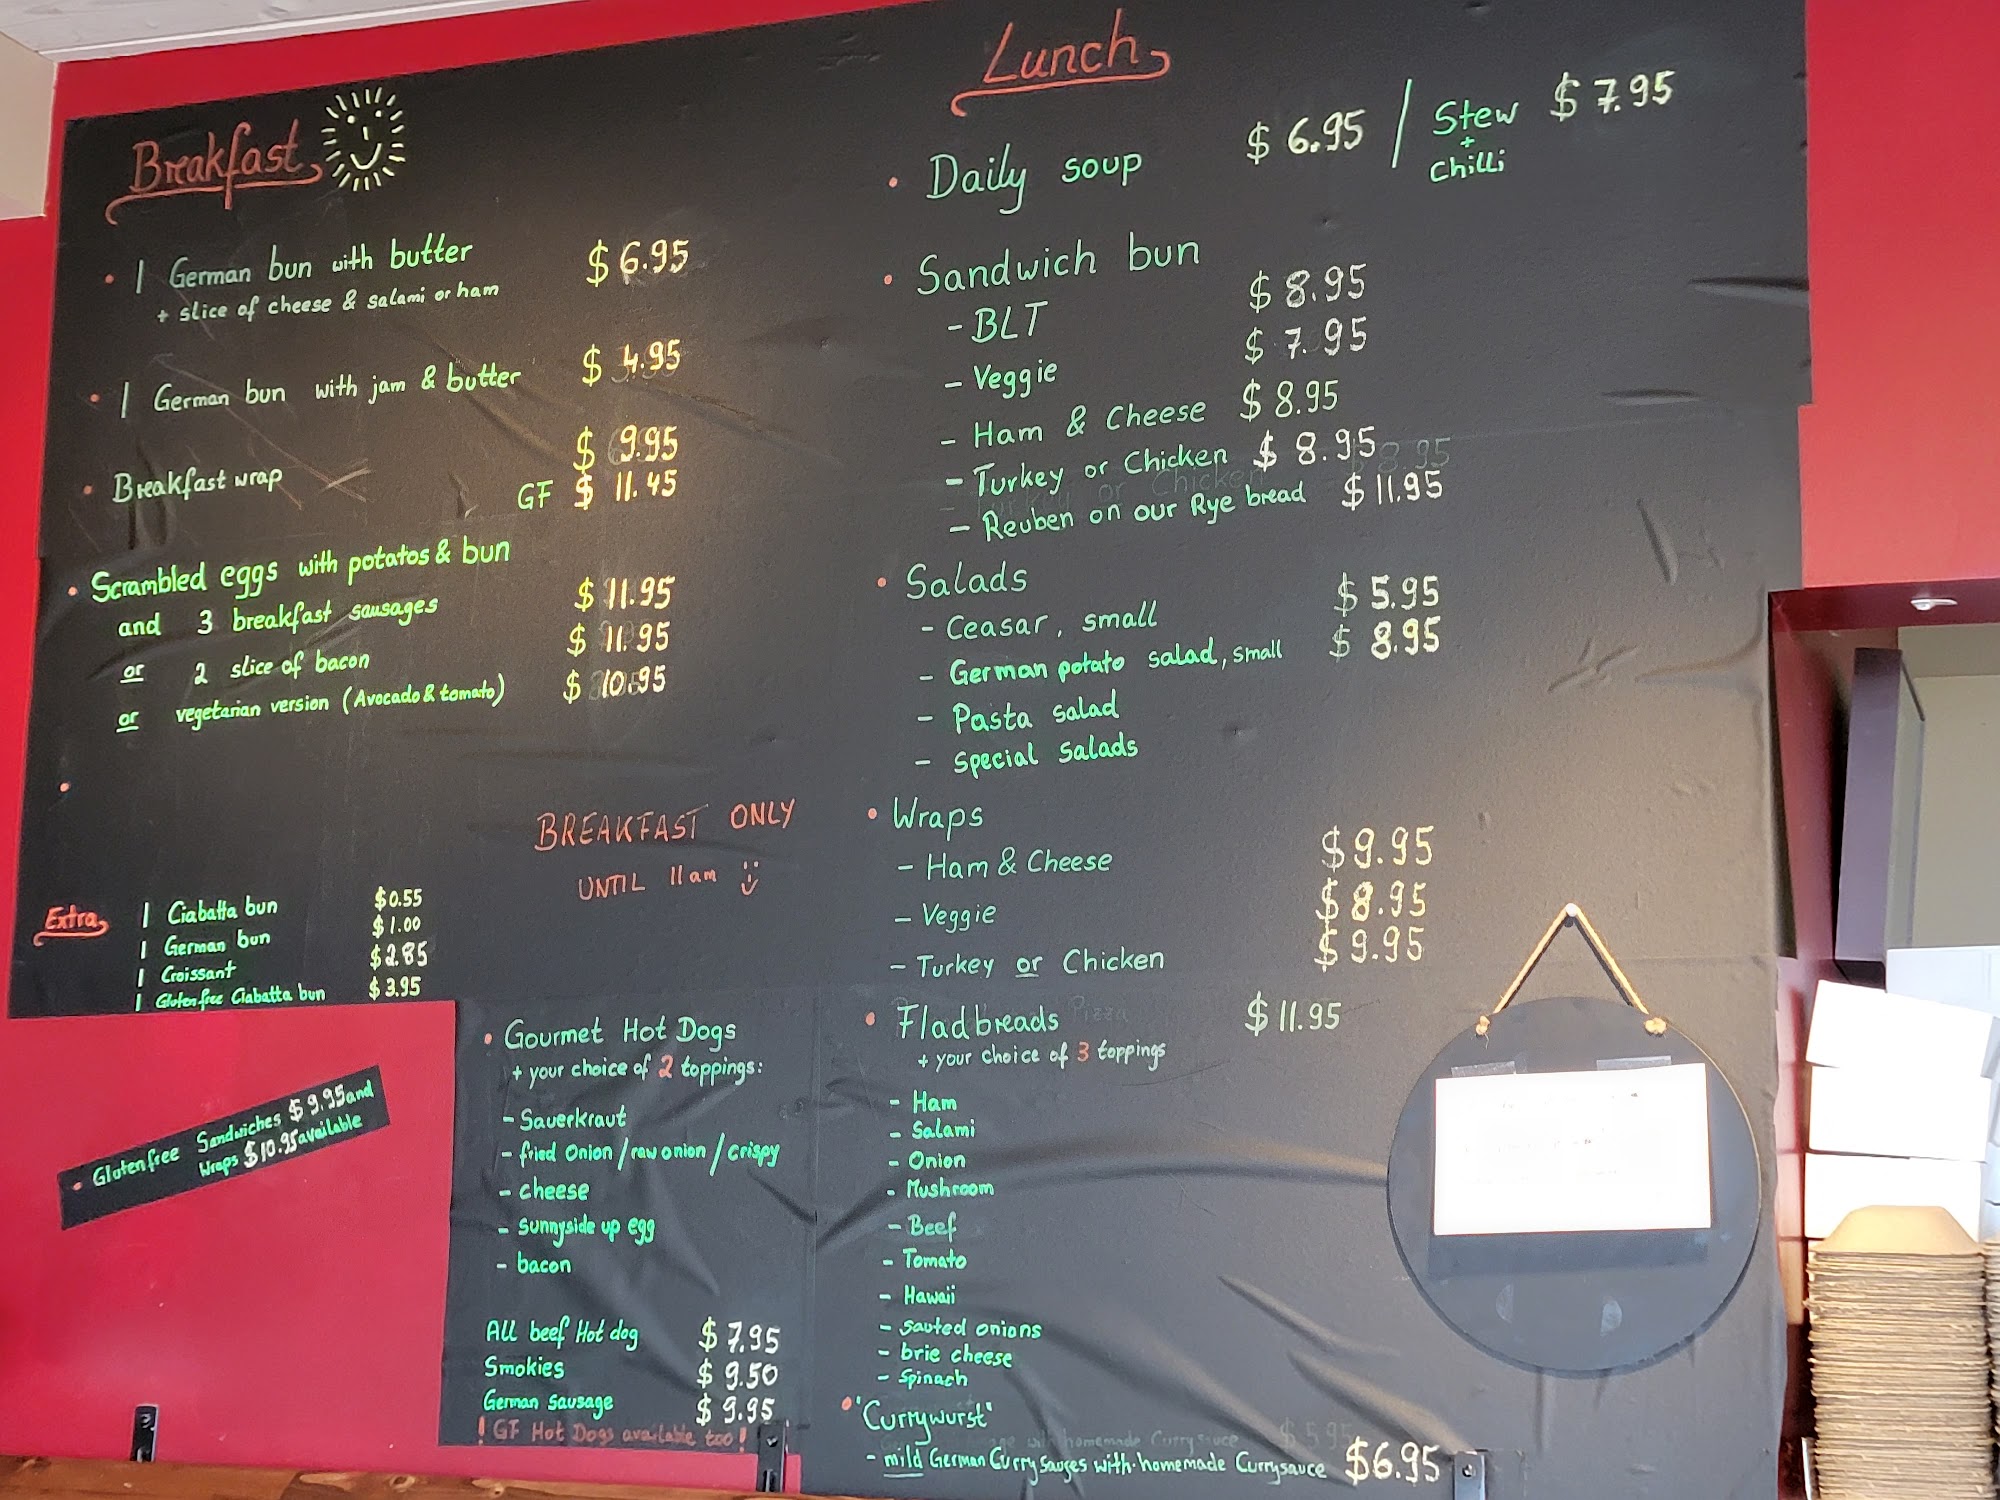 Breakfast
• 1 German bun with butter $6.95
+ slice of cheese & salami or ham
• 1 German bun with jam & butter $4.95
• Breakfast wrap $9.95
GF $11.45
• Scrambled eggs with potatos & bun
and 3 breakfast sausages $11.95
or 2 slice of bacon $11.95
or vegetarian version (Avocado & tomato) $10.95
•
BREAKFAST ONLY
UNTIL 11am
Extra
1 Ciabatta bun $0.55
1 German bun $1.00
1 Croissant $2.85
1 Glutenfree Ciabatta bun $3.95
• Glutenfree Sandwiches $9.95 and
Wraps $10.95 available
• Gourmet Hot Dogs
+ your choice of 2 toppings:
- Sauerkraut
- fried Onion / raw onion / crispy
- cheese
- sunnyside up egg
- bacon
All beef Hot dog $7.95
Smokies $9.50
German Sausage $9.95
! GF Hot Dogs available too!
Lunch
• Daily soup $6.95 / Stew + Chilli $7.95
• Sandwich bun
- BLT $8.95
- Veggie $7.95
- Ham & Cheese $8.95
- Turkey or Chicken $8.95
- Reuben on our Rye bread $11.95
• Salads
- Ceasar, small $5.95
- German potato salad, small $8.95
- Pasta salad
- Special Salads
• Wraps
- Ham & Cheese $9.95
- Veggie $8.95
- Turkey or Chicken $9.95
• Fladbreads $11.95
+ your choice of 3 toppings
- Ham
- Salami
- Onion
- Mushroom
- Beef
- Tomato
- Hawaii
- sauted onions
- brie cheese
- Spinach
• "Currywurst"
- mild German Curry Sauges with homemade Currysauce $6.95